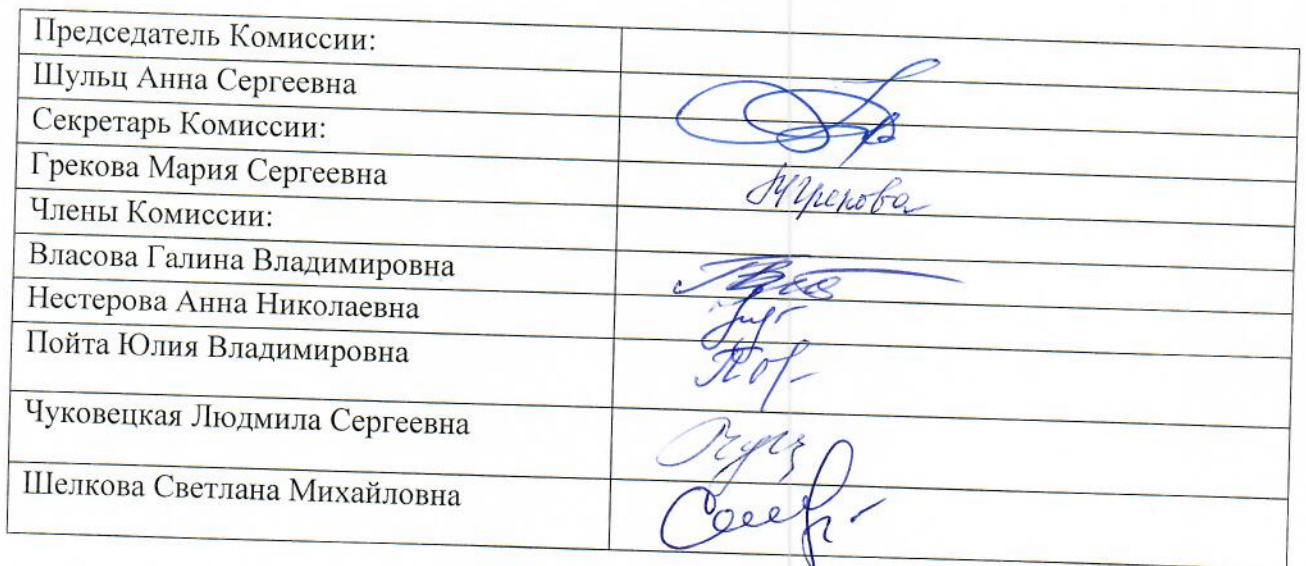 Председатель Комиссии:
Шульц Анна Сергеевна
Секретарь Комиссии:
Грекова Мария Сергеевна
Члены Комиссии:
Власова Галина Владимировна
Нестерова Анна Николаевна
Пойта Юлия Владимировна
Чуковецкая Людмила Сергеевна
Шелкова Светлана Михайловна